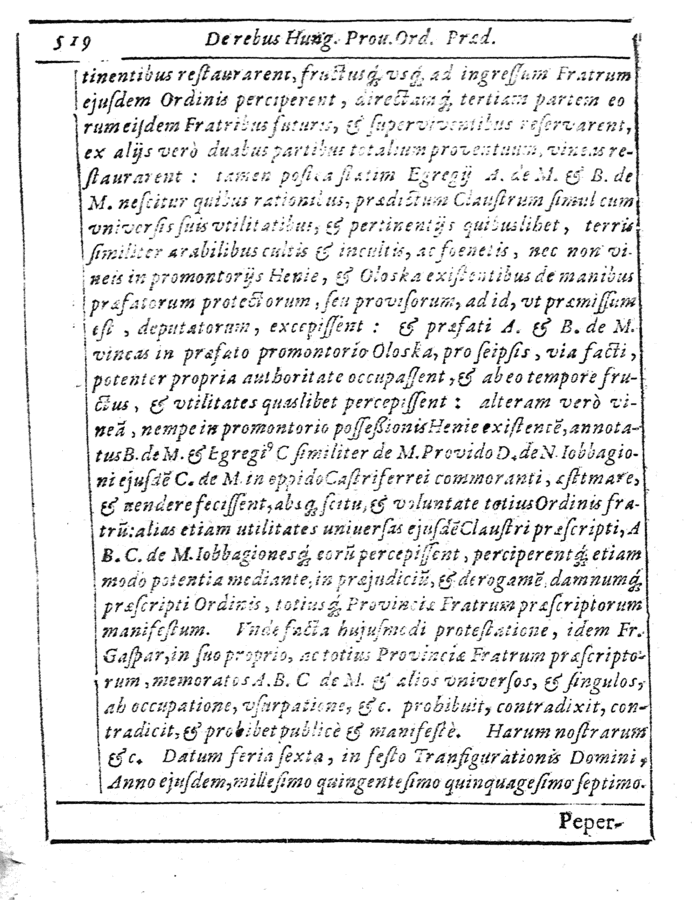 519 De rebus Hung. Prou. Ord. Præd.
tinentibus reſtaurarent, fructusq́ꝫ vsq́ꝫ ad ingreſſum Fratrum
ejuſdem Ordinis perciperent, directamq́ꝫ tertiam partem eo
rum eiſdem Fratribus futuris, & ſuperviventibus reſervarent,
ex alijs verò duabus partibus totalium proventuum, vineas re-
ſtaurarent : tamen poſtea ſtatim Egregij A. de M. & B. de
M. neſcitur quibus rationibus, prædictum Clauſtrum ſimul cum
vniverſis ſuis vtilitatibus, & pertinentijs quibuslibet, terris
ſimiliter arabilibus cultis & incultis, ac foenetis, nec non vi-
neis in promontorijs Henie, & Oloska exiſtentibus de manibus
præfatorum protectorum, ſeu proviſorum, ad id, vt præmiſſum
eſt, deputatorum, excepiſſent : & præfati A. & B. de M.
vineas in præfato promontorio Oloska, pro ſeipſis, via facti,
potenter propria authoritate occupaſſent, & ab eo tempore fru-
ctus, & vtilitates quaslibet percepiſſent : alteram verò vi-
neā, nempe in promontorio poſſeßionis Henie exiſtentē, annota-
tus B. de M. & Egregiꝰ C ſimiliter de M. Provido D. de N. Iobbagio-
ni ejuſdē C. de M. in oppido Caſtriferrei commoranti, æſtimare,
& vendere feciſſent, absq́ꝫ ſcitu, & voluntate totius Ordinis fra-
trū: alias etiam utilitates univerſas ejuſdē Clauſtri præſcripti, A
B. C. de M. Iobbagionesq́ꝫ eorū percepiſſent, perciperentq́ꝫ etiam
modo potentia mediante, in præjudiciū, & derogamē, damnumq́ꝫ
præſcripti Ordinis, totiusq́ꝫ Provinciæ Fratrum præſcriptorum
manifeſtum. Vnde facta hujuſmodi proteſtatione, idem Fr.
Gaſpar, in ſuo proprio, ac totius Provinciæ Fratrum præſcripto-
rum, memoratos A. B. C de M. & alios vniverſos, & ſingulos,
ab occupatione, vſurpatione, & c. prohibuit, contradixit, con-
tradicit, & prohibet publicè & manifeſtè. Harum noſtrarum
& c. Datum feria ſexta, in feſto Tranſigurationis Domini,
Anno ejuſdem, milleſimo quingenteſimo quinquageſimo ſeptimo.
Peper-